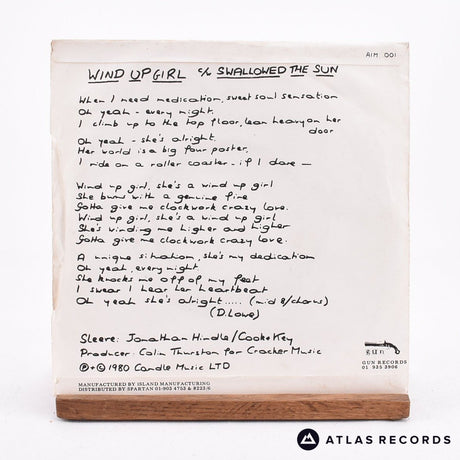 AIM 001
WIND UP GIRL c/w SWALLOWED THE SUN
When I need medication, sweet soul sensation
Oh yeah - every night.
I climb up to the top floor, lean heavy on her
door
Oh yeah - she's alright.
Her world is a big four poster,
I ride on a roller coaster - if I dare —
Wind up girl, she's a wind up girl
She burns with a genuine fire
Gotta give me clockwork crazy love.
Wind up girl, she's a wind up girl
She's winding me higher and higher
Gotta give me clockwork crazy love.
A unique situation, she's my dedication
Oh yeah, every night
She knocks me off of my feet
I swear I hear her heartbeat
Oh yeah she's alright..... (mid 8/chorus)
(D. Love)
Sleeve: Jonathan Hindle/Cooke Key
Producer: Colin Thurston for Cracker Music
Ⓟ+© 1980 Candle Music LTD
gun
GUN RECORDS
01 935 3906
MANUFACTURED BY ISLAND MANUFACTURING
DISTRIBUTED BY SPARTAN 01-903 4753 & 8223/6
ATLAS RECORDS